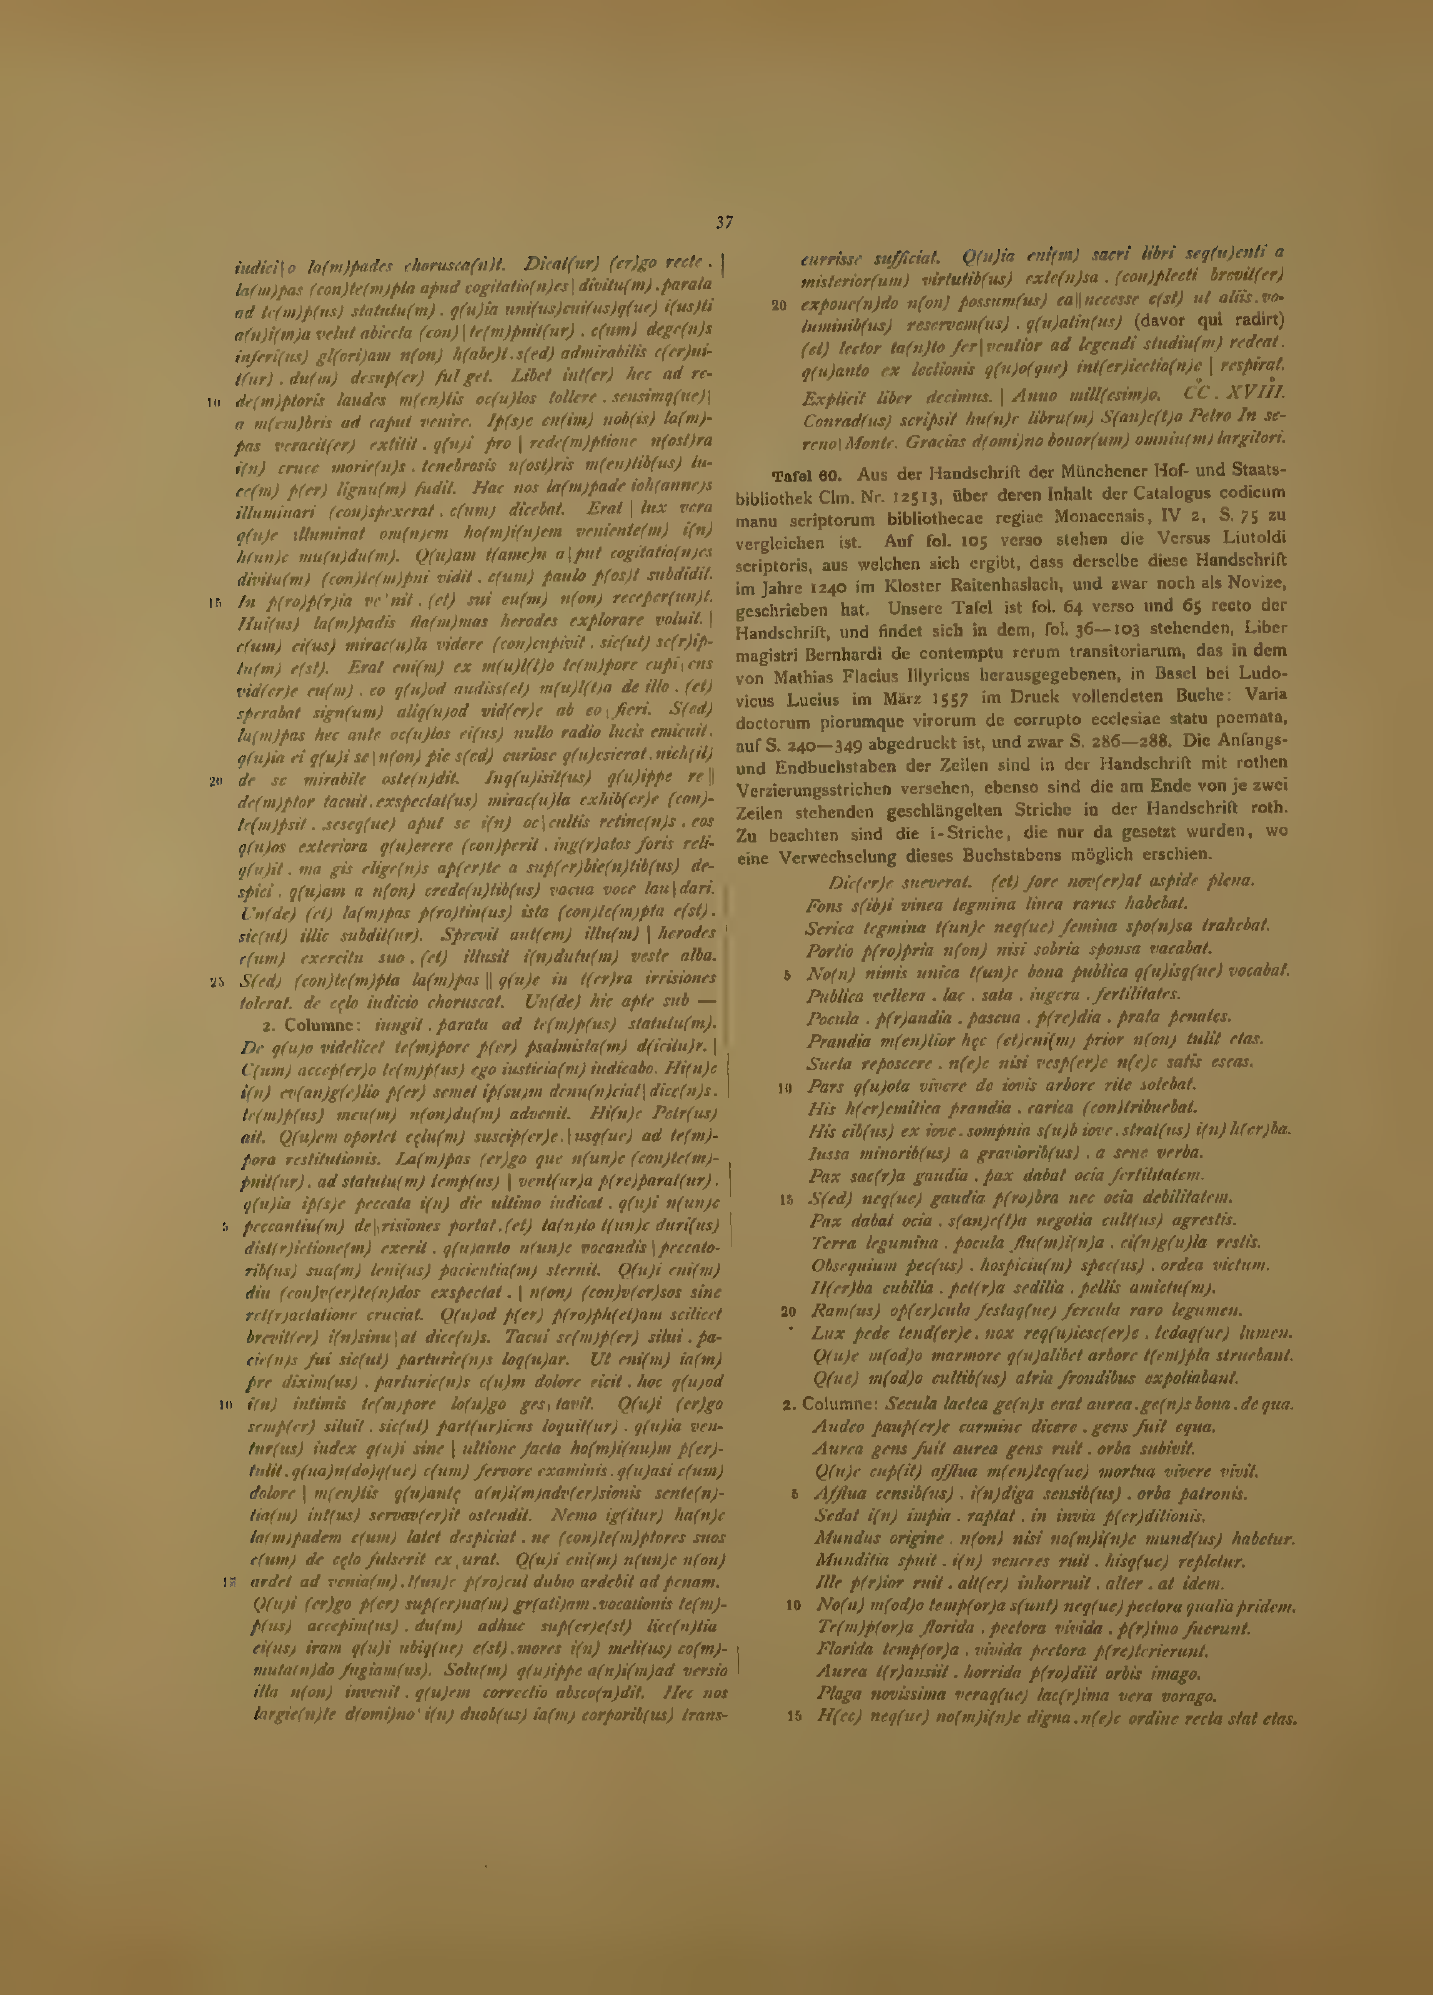 37
iudici|o la(m)pades chorusca(n)t. Dicat(ur) (er)go recte . |
la(m)pas (con)te(m)pta apud cogitatio(n)es | divitu(m) . parata
ad te(m)p(us) statutu(m) . q(u)ia uni(us)cui(us)q(ue) i(us)ti
a(n)i(m)a velut abiecta (con) | te(m)pnit(ur) . c(um) dege(n)s
inferi(us) gl(ori)am n(on) h(abe)t . s(ed) admirabilis c(er)ni-
t(ur) . du(m) desup(er) ful get. Libet int(er) hec ad re-
10 de(m)ptoris laudes m(en)tis oc(u)los tollere . sensimq(ue) |
a m(em)bris ad caput venire. Ip(s)e en(im) nob(is) la(m)-
pas veracit(er) extitit . q(u)i pro | rede(m)ptione n(ost)ra
i(n) cruce morie(n)s . tenebrosis n(ost)ris m(en)tib(us) lu-
ce(m) p(er) lignu(m) fudit. Hac nos la(m)pade ioh(anne)s
illuminari (con)spexerat . c(um) dicebat. Erat | lux vera
q(u)e illuminat om(n)em ho(m)i(n)em veniente(m) i(n)
h(un)c mu(n)du(m). Q(u)am t(ame)n a | put cogitatio(n)es
divitu(m) (con)te(m)pni vidit . c(um) paulo p(os)t subdidit.
15 In p(ro)p(r)ia ve'nit . (et) sui eu(m) n(on) receper(un)t.
Hui(us) la(m)padis fla(m)mas herodes explorare voluit. |
c(um) ei(us) mirac(u)la videre (con)cupivit . sic(ut) sc(r)ip-
tu(m) e(st). Erat eni(m) ex m(u)l(t)o te(m)pore cupi | ens
vid(er)e eu(m) . eo q(u)od audiss(et) m(u)l(t)a de illo . (et)
sperabat sign(um) aliq(u)od vid(er)e ab eo | fieri. S(ed)
la(m)pas hec ante oc(u)los ei(us) nullo radio lucis emicuit.
q(u)ia ei q(u)i se | n(on) pie s(ed) curiose q(u)esierat . nich(il)
20 de se mirabile oste(n)dit. Inq(u)isit(us) q(u)ippe re ||
de(m)ptor tacuit . exspectat(us) mirac(u)la exhib(er)e (con)-
te(m)psit . seseq(ue) aput se i(n) oc | cultis retine(n)s . eos
q(u)os exteriora q(u)erere (con)perit . ing(r)atos foris reli-
q(u)it . ma gis elige(n)s ap(er)te a sup(er)bie(n)tib(us) de-
spici . q(u)am a n(on) crede(n)tib(us) vacua voce lau | dari.
Un(de) (et) la(m)pas p(ro)tin(us) ista (con)te(m)pta e(st).
sic(ut) illic subdit(ur). Sprevit aut(em) illu(m) | herodes
c(um) exercitu suo . (et) illusit i(n)dutu(m) veste alba.
25 S(ed) (con)te(m)pta la(m)pas || q(u)e in t(er)ra irrisiones
tolerat. de cęlo iudicio choruscat. Un(de) hic apte sub —
2. Columne: iungit . parata ad te(m)p(us) statutu(m).
De q(u)o videlicet te(m)pore p(er) psalmista(m) d(icitu)r. |
C(um) accep(er)o te(m)p(us) ego iusticia(m) iudicabo. Hi(u)c
i(n) ev(an)g(e)lio p(er) semet ip(su)m denu(n)ciat | dice(n)s.
te(m)p(us) meu(m) n(on)du(m) advenit. Hi(n)c Petr(us)
ait. Q(u)em oportet cęlu(m) suscip(er)e. | usq(ue) ad te(m)-
pora restitutionis. La(m)pas (er)go que n(un)c (con)te(m)-
pnit(ur). ad statutu(m) temp(us) | vent(ur)a p(re)parat(ur).
q(u)ia ip(s)e peccata i(n) die ultimo iudicat . q(u)i n(un)c
5 peccantiu(m) de | risiones portat . (et) ta(n)to t(un)c duri(us)
dist(r)ictione(m) exerit . q(u)anto n(un)c vocandis | peccato-
rib(us) sua(m) leni(us) pacientia(m) sternit. Q(u)i eni(m)
diu (con)v(er)te(n)dos exspectat . | n(on) (con)v(er)sos sine
ret(r)actatione cruciat. Q(u)od p(er) p(ro)ph(et)am scilicet
brevit(er) i(n)sinu | at dice(n)s. Tacui se(m)p(er) silui . pa-
cie(n)s fui sic(ut) parturie(n)s loq(u)ar. Ut eni(m) ia(m)
pre dixim(us) . parturie(n)s c(u)m dolore eicit . hoc q(u)od
10 i(n) intimis te(m)pore lo(u)go ges | tavit. Q(u)i (er)go
semp(er) siluit . sic(ut) part(ur)iens loquit(ur) . q(u)ia ven-
tur(us) iudex q(u)i sine | ultione facta ho(m)i(nu)m p(er)-
tulit . q(ua)n(do)q(ue) c(um) fervore examinis . q(u)asi c(um)
dolore | m(en)tis q(u)antę a(n)i(m)adv(er)sionis sente(n)-
tia(m) int(us) servav(er)it ostendit. Nemo ig(itur) ha(n)c
la(m)padem c(um) latet despiciat . ne (con)te(m)ptores suos
c(um) de cęlo fulserit ex | urat. Q(u)i eni(m) n(un)c n(on)
15 ardet ad venia(m) . t(un)c p(ro)cul dubio ardebit ad penam.
Q(u)i (er)go p(er) sup(er)na(m) gr(ati)am . vocationis te(m)-
p(us) accepim(us) . du(m) adhuc sup(er)e(st) lice(n)tia
ei(us) iram q(u)i ubiq(ue) e(st) . mores i(n) meli(us) co(m)-
muta(n)do fugiam(us). Solu(m) q(u)ippe a(n)i(m)ad versio
illa n(on) invenit . q(u)em correctio absco(n)dit. Hec nos
largie(n)te d(omi)no' i(n) duob(us) ia(m) corporib(us) trans-
currisse sufficiat. Q(u)ia eni(m) sacri libri seq(u)enti a
misterior(um) virtutib(us) exte(n)sa . (con)plecti brevit(er)
20 expone(n)do n(on) possum(us) ea || necesse e(st) ut aliis . vo-
luminib(us) reservem(us) . q(u)atin(us) (davor qui radirt)
(et) lector ta(n)to fer | ventior ad legendi studiu(m) redeat.
q(u)anto ex lectionis q(u)o(que) int(er)iectio(n)e | respirat.
Explicit liber decimus. | Anno mill(esim)o. CC . XVIII.
Conrad(us) scripsit hu(n)c libru(m) S(an)c(t)o Petro In se-
reno | Monte. Gracias d(omi)no bonor(um) omniu(m) largitori.
Tafel 60. Aus der Handschrift der Münchener Hof- und Staats-
bibliothek Clm. Nr. 12513, über deren Inhalt der Catalogus codicum
manu scriptorum bibliothecae regiae Monacensis, IV 2, S. 75 zu
vergleichen ist. Auf fol. 105 verso stehen die Versus Liutoldi
scriptoris, aus welchen sich ergibt, dass derselbe diese Handschrift
im Jahre 1240 im Kloster Raitenhaslach, und zwar noch als Novize,
geschrieben hat. Unsere Tafel ist fol. 64 verso und 65 recto der
Handschrift, und findet sich in dem, fol. 36—103 stehenden, Liber
magistri Bernhardi de contemptu rerum transitoriarum, das in dem
von Mathias Flacius Illyricus herausgegebenen, in Basel bei Ludo-
vicus Lucius im März 1557 im Druck vollendeten Buche: Varia
doctorum piorumque virorum de corrupto ecclesiae statu poemata,
auf S. 240—349 abgedruckt ist, und zwar S. 286—288. Die Anfangs-
und Endbuchstaben der Zeilen sind in der Handschrift mit rothen
Verzierungsstrichen versehen, ebenso sind die am Ende von je zwei
Zeilen stehenden geschlängelten Striche in der Handschrift roth.
Zu beachten sind die i-Striche, die nur da gesetzt wurden, wo
eine Verwechselung dieses Buchstabens möglich erschien.
Dic(er)e sueverat. (et) fore nov(er)at aspide plena.
Fons s(ib)i vinea tegmina linea rarus habebat.
Serica tegmina t(un)c neq(ue) femina spo(n)sa trahebat.
Portio p(ro)pria n(on) nisi sobria sponsa vacabat.
5 No(n) nimis unica t(un)c bona publica q(u)isq(ue) vocabat.
Publica vellera . lac . sata . iugera . fertilitates.
Pocula . p(r)andia . pascua . p(re)dia . prata penates.
Prandia m(en)tior hęc (et)eni(m) prior n(on) tulit etas.
Sueta reposcere . n(e)c nisi vesp(er)e n(e)c satis escas.
10 Pars q(u)ota vivere de iovis arbore rite solebat.
His h(er)emitica prandia . carica (con)tribuebat.
His cib(us) ex iove . sompnia s(u)b iove . strat(us) i(n) h(er)ba.
Iussa minorib(us) a gravioribus) . a sene verba.
Pax sac(r)a gaudia . pax dabat ocia fertilitatem.
15 S(ed) neq(ue) gaudia p(ro)bra nec ocia debilitatem.
Pax dabat ocia . s(an)c(t)a negotia cult(us) agrestis.
Terra legumina . pocula flu(m)i(n)a . ci(n)g(u)la restis.
Obsequium pec(us) . hospiciu(m) spec(us) . ordea victum.
H(er)ba cubilia . pet(r)a sedilia . pellis amictu(m).
20 Ram(us) op(er)cula festaq(ue) fercula raro legumen.
Lux pede tend(er)e . nox req(u)iesc(er)e . tedaq(ue) lumen.
Q(u)e m(od)o marmore q(u)alibet arbore t(em)pla struebant.
Q(ue) m(od)o cultib(us) atria frondibus expoliabant.
2. Columne: Secula lactea ge(n)s erat aurea . ge(n)s bona . de qua.
Audeo paup(er)e carmine dicere . gens fuit equa.
Aurea gens fuit aurea gens ruit . orba subivit.
Q(u)e cup(it) afflua m(en)teq(ue) mortua vivere vivit.
5 Afflua censib(us) . i(n)diga sensib(us) . orba patronis.
Sedat i(n) impia . raptat . in invia p(er)ditionis.
Mundus origine . n(on) nisi no(m)i(n)e mund(us) habetur.
Munditia spuit . i(n) veneres ruit . hisq(ue) repletur.
Ille p(r)ior ruit . alt(er) inhorruit . alter . at idem.
10 No(u) m(od)o temp(or)a s(unt) neq(ue) pectora qualia pridem.
Te(m)p(or)a florida . pectora vivida . p(r)imo fuerunt.
Florida temp(or)a . vivida pectora p(re)terierunt.
Aurea t(r)ansiit . horrida p(ro)diit orbis imago.
Plaga novissima veraq(ue) lac(r)ima vera vorago.
15 H(ec) neq(ue) no(m)i(n)e digna . n(e)c ordine recta stat etas.